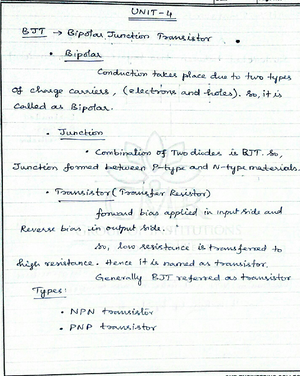 UNIT-4
BJT → Bipolar Junction Transistor.
• Bipolar
Conduction takes place due to two types
of charge carriers, (electrons and holes). So, it is
called as Bipolar.
• Junction
• Combination of Two diodes is BJT. So,
Junction formed between P-type and N-type materials.
• Transistor (Transfer Resistor)
forward bias applied in input side and
Reverse bias in output side.
So, low resistance is transferred to
high resistance. Hence it is named as transistor.
Generally BJT referred as transistor
Types:
• NPN transistor
• PNP transistor